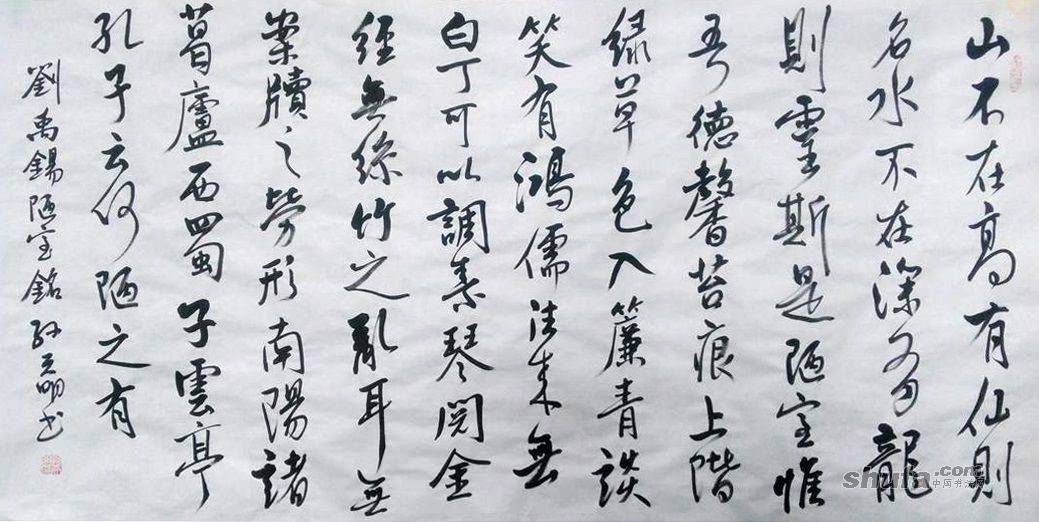 山不在高有仙則
名水不在深有龍
則靈斯是陋室惟
吾德馨苔痕上階
綠草色入簾青談
笑有鴻儒往來無
白丁可以調素琴閱金
經無絲竹之亂耳無
案牘之勞形南陽諸
葛廬西蜀子雲亭
孔子云何陋之有
劉禹錫陋室銘 明书
shufa.com
中国书法网